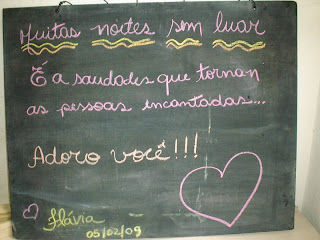 Muitas noites sem luar
É a saudades que tornan
as pessoas encantadas...
Adoro você!!!
Flávia
05/02/09